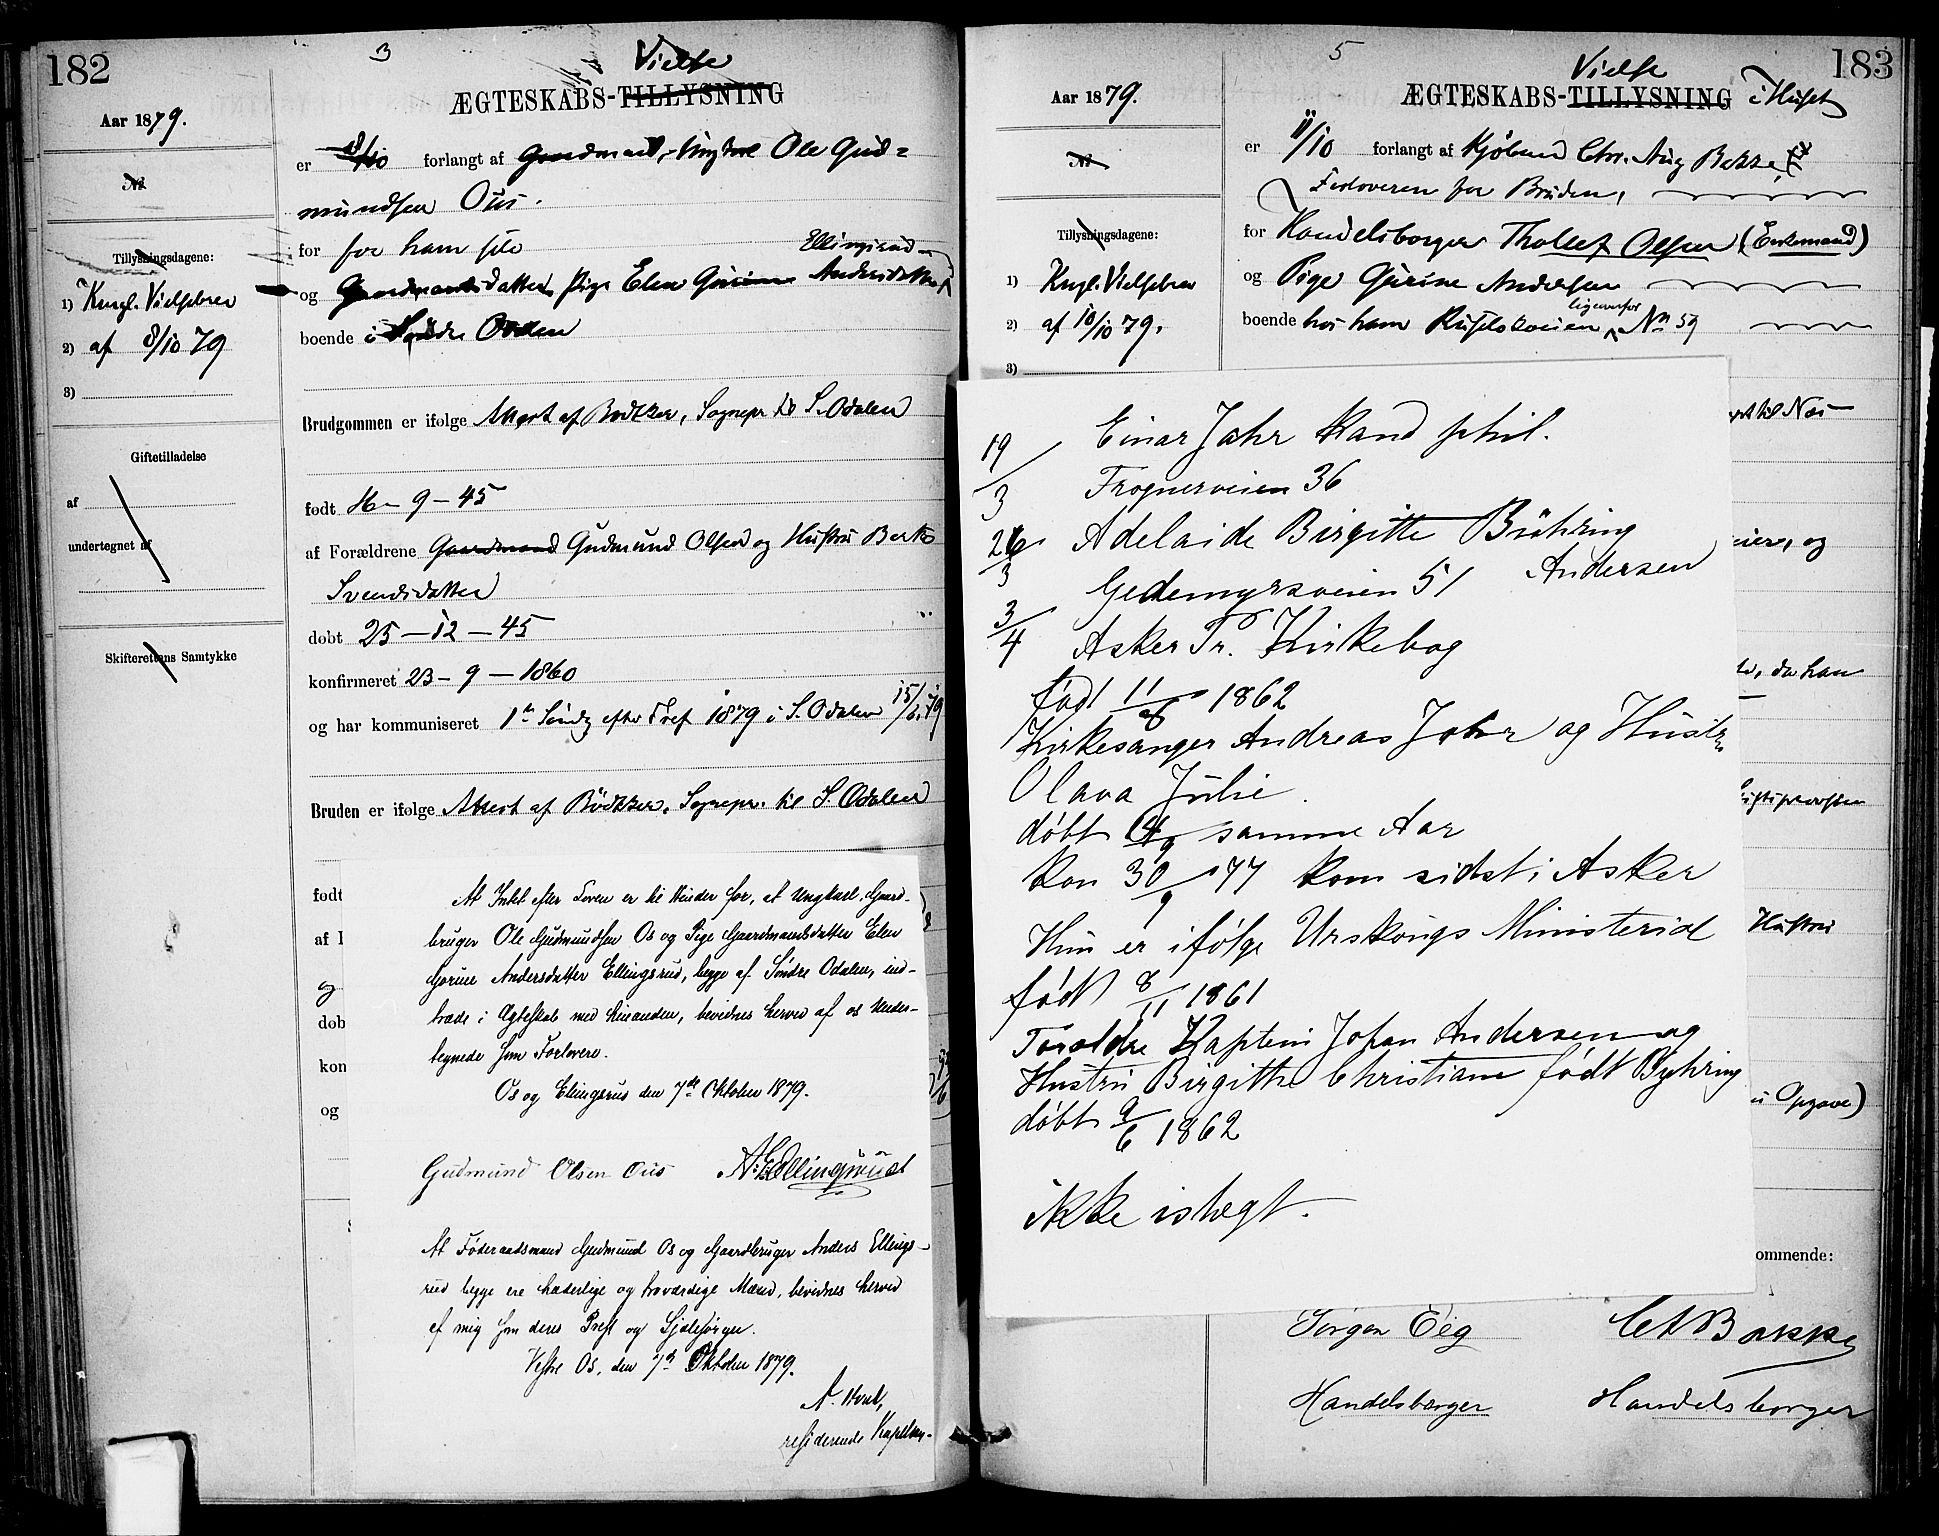 182
3
Vielse
ÆGTESKABS-TILLYSNING
Aar 1879.
No
er 8/10 forlangt af Gaardmand, Ungkarl Ole Gud=
mundsen Ous.
for for ham selv
Ellingsrud
og Gaardmandsdatter Pige Elen Gurine Andersdatter
boende i Søndre Odalen
Tillysningsdagene:
1) Kngl. Vielsebrev
2) af 8/10 79
3)
Brudgommen er ifølge Attest af Bødtker, Sognepr. til S. Odalen
Giftetilladelse
af
undertegnet af
født 16 - 9 - 45
af Forældrene Gaardmand Gudmund Olsen og Hustru Berte
Svendsdatter
døbt 25 - 12 - 45
Skifterettens Samtykke
konfirmeret 23 - 9 - 1860
og har kommuniseret 1ste Søndg efter Tref 1879 i S. Odalen 15/6 79
Bruden er ifølge Attest af Bødtker, Sognepr. til S. Odalen
født
af
og
døb
kon
og
At Intet efter Loven er til Hinder for, at Ungkarl, Gaard-
bruger Ole Gudmundsen Os og Pige Gaardmandsdatter Elen
Gorine Andersdatter Ellingsrud, begge af Søndre Odalen, ind-
træde i Ægteskab med hinanden, bevidnes herved af os Under-
tegnede som Forlovere.
Os og Elingsrud den 7de Oktober 1879.
Gudmund Olsen Ous A. E. Ellingsrud
At Føderaadsmand Gudmund Os og Gaardbruger Anders Ellings-
rud begge ere hæderlige og troværdige Mænd, bevidnes herved
af mig som deres Prest og Sjælesørger.
Vestre Os, den 7de Oktober 1879.
residerende Kapellan.
183
5
Vielse
ÆGTESKABS-TILLYSNING i Huset
Aar 1879.
No
er 11/10 forlangt af Kjøbmd Chr. Aug Bakke,
Forloveren for Bruden,
Tillysningsdagene:
for Handelsborger Thollef Olsen (Enkemand)
og Pige Gurine Andersen
ligeoverfor
boende hos ham Ruseløkveien No 59
1) Kngl. Vielsebrev
2) af 10/10 79.
3)
til Næs
og
da han
Stiftsprovsten
Hustru
Opgave)
ommende:
19/3 Einar Jahr Kand phil.
Frognerveien 36
26/3 Adelaide Birgitte Bühring
Andersen
Gedemyrsveien 51
3/4 Asker Pr. Kirkebog
født 11/8 1862
Kirkesanger Andreas Jahr og Hustr.
Olava Julie.
døbt 14/9 samme Aar
kon 30/9 77 kom sidst i Asker
Hun er ifølge Urskougs Ministerial
født 8/11 1861
Forældre Kaptein Johan Andersen og
Hustru Birgitte Christiane født Byhring
døbt 9/6 1862
ikke istægt.
Jørgen Eeg CA Bakke
Handelsborger Handelsborger